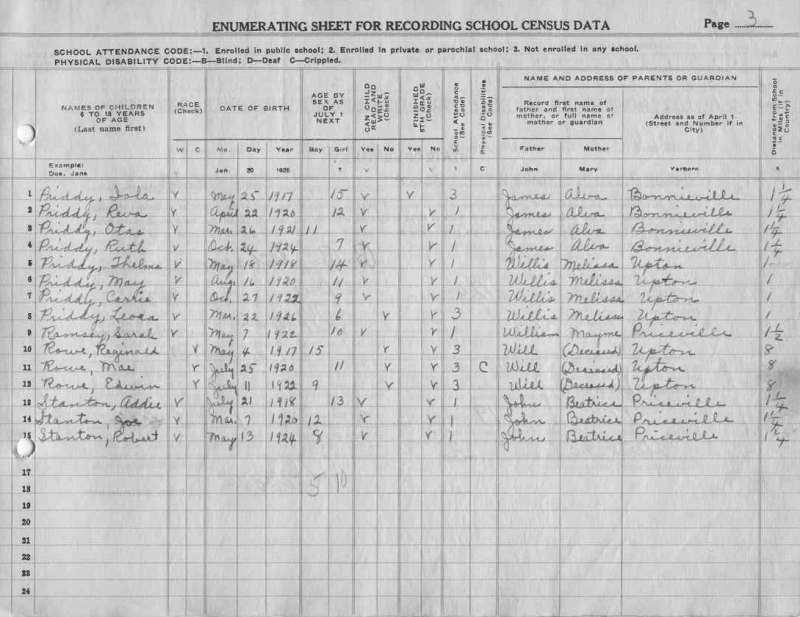 ENUMERATING SHEET FOR RECORDING SCHOOL CENSUS DATA Page 3
SCHOOL ATTENDANCE CODE:—1. Enrolled in public school; 2. Enrolled in private or parochial school; 3. Not enrolled in any school.
PHYSICAL DISABILITY CODE:—B—Blind; D—Deaf C—Crippled.
NAMES OF CHILDREN 6 TO 18 YEARS OF AGE (Last name first) RACE (Check) DATE OF BIRTH AGE BY SEX AS OF JULY 1 NEXT CAN CHILD READ AND WRITE (Check) FINISHED 8TH GRADE (Check) School Attendance (See Code) Physical Disabilities (See Code) NAME AND ADDRESS OF PARENTS OR GUARDIAN Distance from School in Miles (If in Country)
Record first name of father and first name of mother, or full name of mother or guardian Address as of April 1 (Street and Number if in City)
W C Mo. Day Year Boy Girl Yes No Yes No Father Mother
Example: Doe, Jane Jan. 20 1925 John Mary Yerborn
1 Priddy, Iola v May 25 1917 15 v v 3 James Alva Bonnieville 1 1/4
2 Priddy, Reva v April 22 1920 12 v v 1 James Alva Bonnieville 1 1/4
3 Priddy, Otas v Mar. 26 1921 11 v v 1 James Alva Bonnieville 1 1/4
4 Priddy, Ruth v Oct. 24 1924 7 v v 1 James Alva Bonnieville 1 1/4
5 Priddy, Thelma v May 18 1918 14 v v 1 Willis Melissa Upton 1
6 Priddy, May v Aug. 16 1920 11 v v 1 Willis Melissa Upton 1
7 Priddy, Carrie v Oct. 27 1922 9 v v 1 Willis Melissa Upton 1
8 Priddy, Leosa v Mar. 22 1926 6 v v 3 Willis Melissa Upton 1
9 Ramsey, Sarah v May 7 1922 10 v v 1 William Mayme Priceville 1 1/2
10 Rowe, Reginald v May 4 1917 15 v v 3 Will (Deceased) Upton 8
11 Rowe, Mae v July 25 1920 11 v v 3 C Will (Deceased) Upton 8
12 Rowe, Edwin v July 11 1922 9 v v 3 Will (Deceased) Upton 8
13 Stanton, Addie v July 21 1918 13 v v 1 John Beatrice Priceville 1 1/4
14 Stanton, Joe v Mar. 7 1920 12 v v 1 John Beatrice Priceville 1 1/4
15 Stanton, Robert v May 13 1924 8 v v 1 John Beatrice Priceville 1 1/4
17
18 5 10
19
20
21
22
23
24